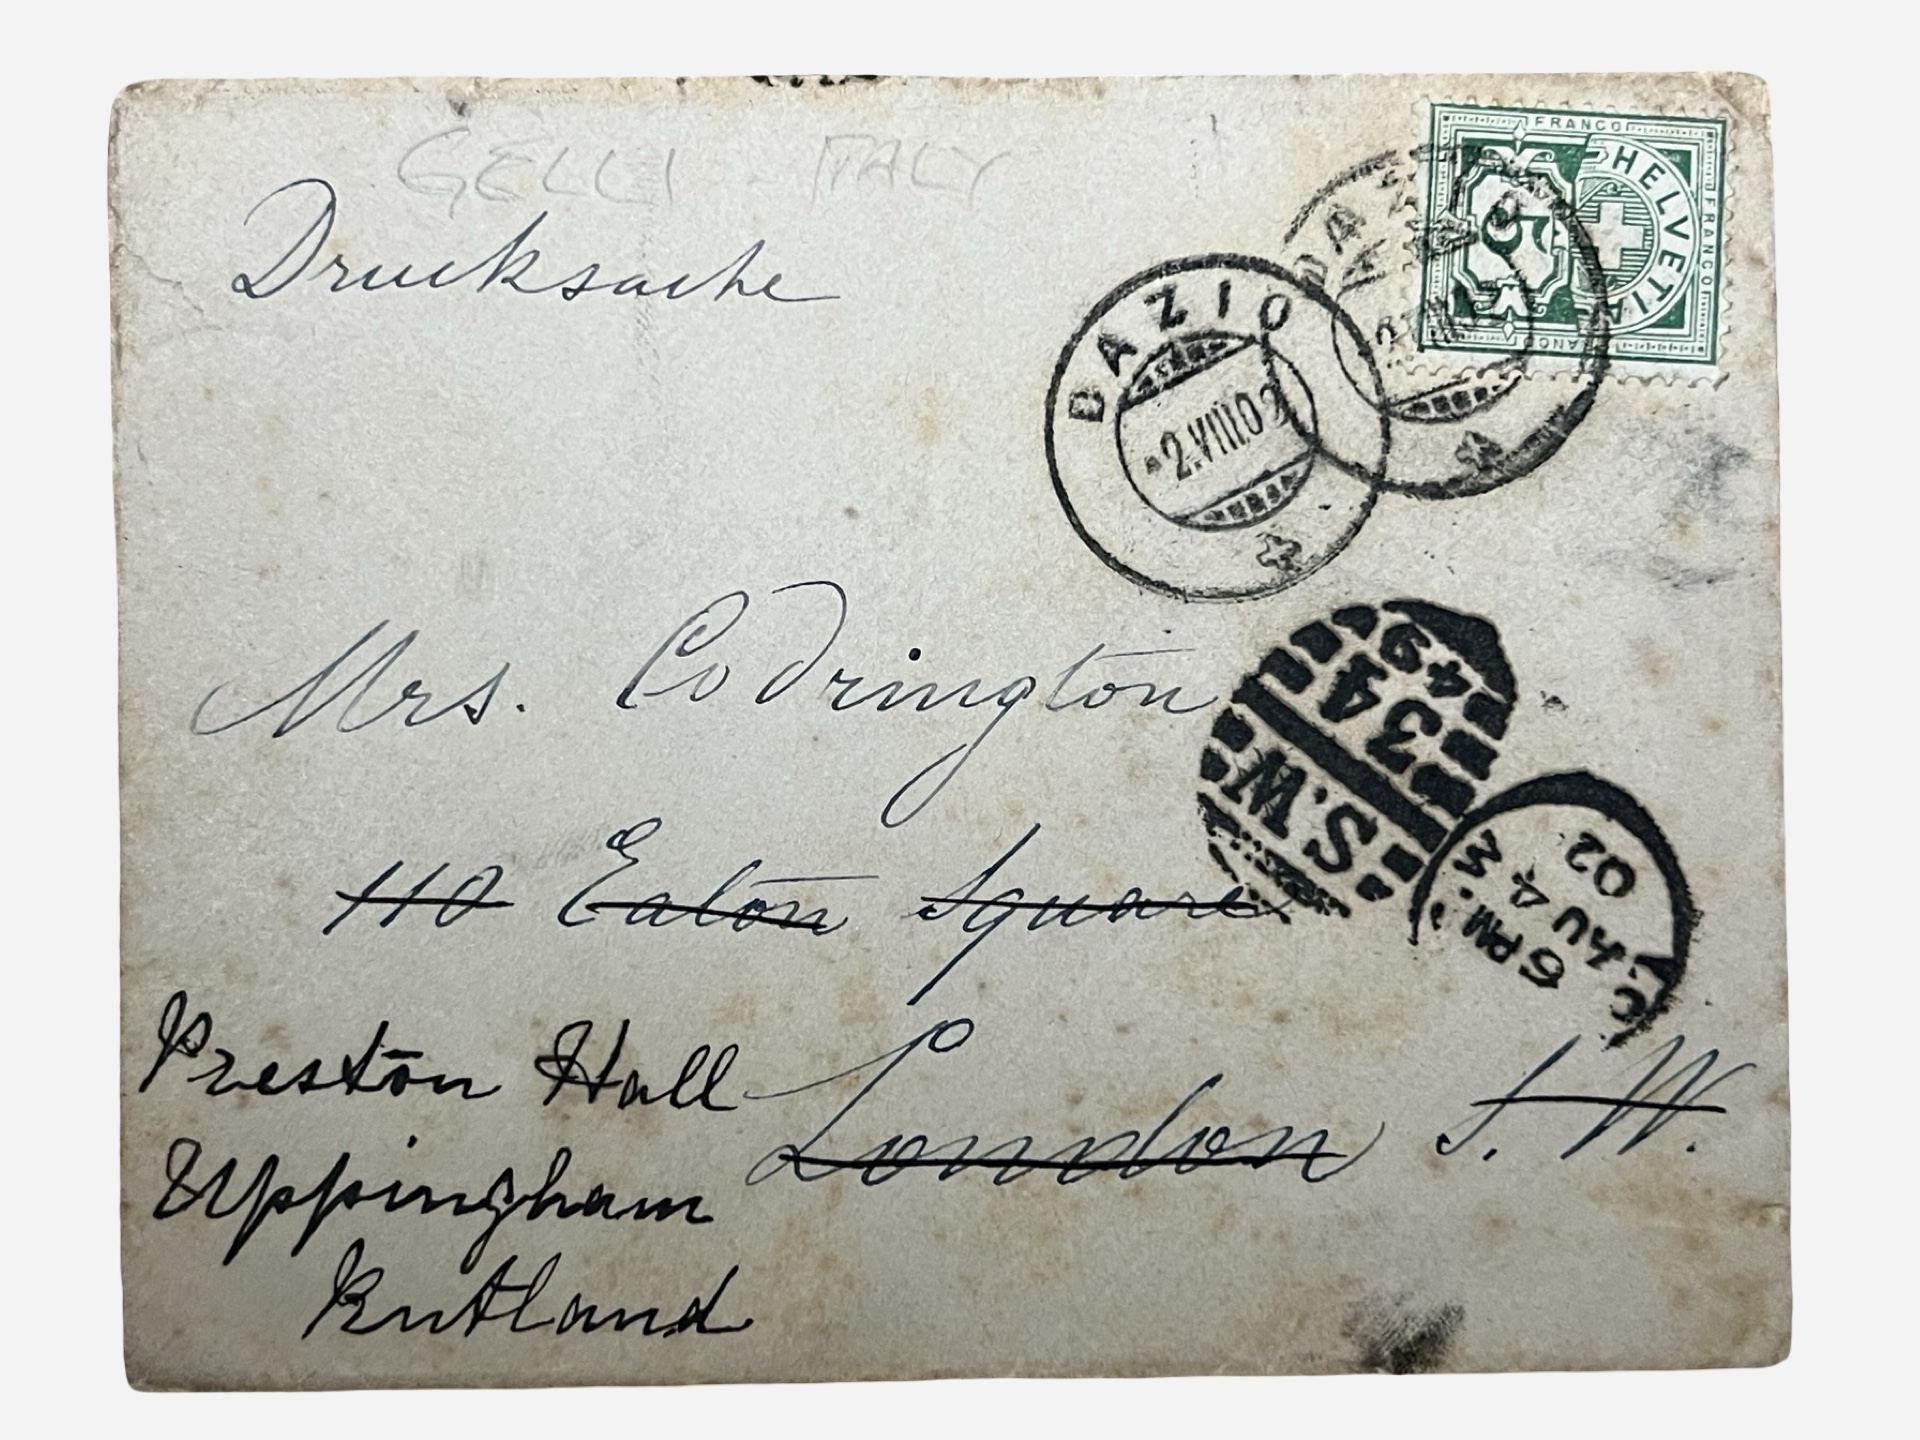 GELLI - ITALY
Drucksache
FRANCO
HELVETIA
FRANCO
FRANCO
5
DAZIO
2.VIII.02
Mrs. Codrington
S.W
34
49
110 Eaton Square
6 PM
AU 4
02
3
Preston Hall
London S.W.
Uppingham
Rutland